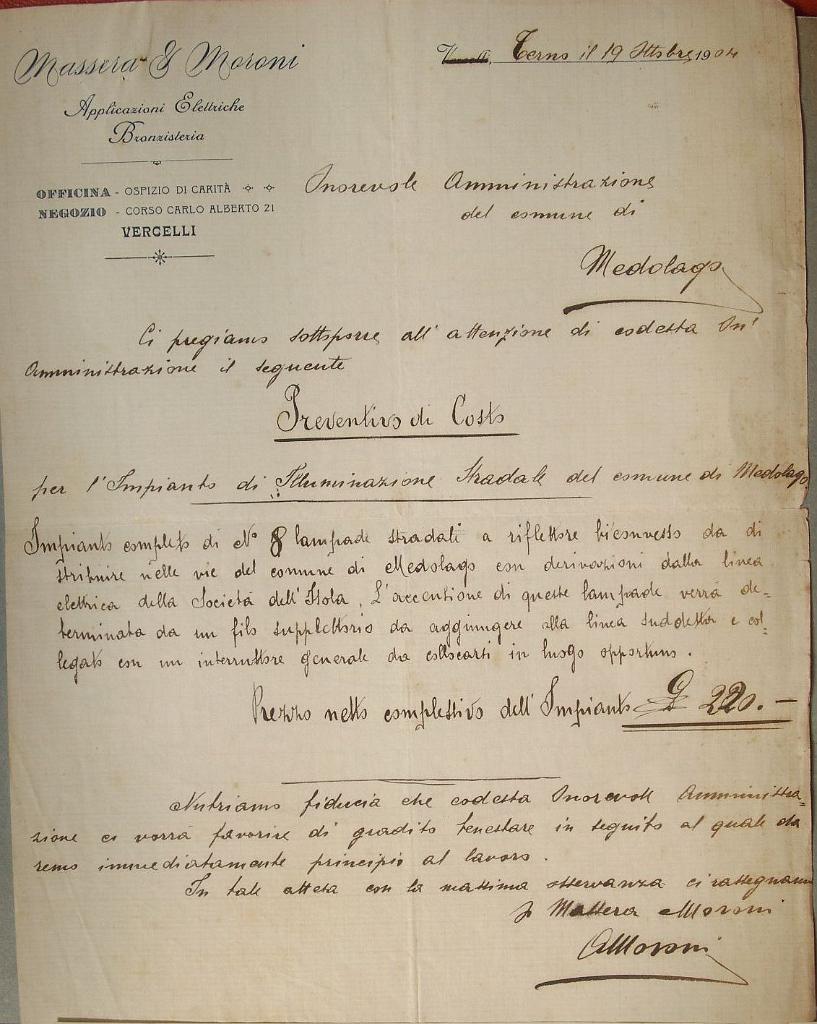 Massera & Moroni
Applicazioni Elettriche
Bronzisteria
OFFICINA - OSPIZIO DI CARITÀ
NEGOZIO - CORSO CARLO ALBERTO 21
VERCELLI
Terno il 19 Ottobre 1904
Onorevole Amministrazione
del comune di
Medolago
Ci pregiamo sottoporre all'attenzione di codesta On'
Amministrazione il seguente
Preventivo di Costo
per l'Impianto di Illuminazione Stradale del comune di Medolago
Impianto completo di N° 8 lampade stradali a riflettore biconvesso da di
stribuire nelle vie del comune di Medolago con derivazioni dalla linea
elettrica della Società dell'Isola. L'accentione di queste lampade verrà de-
terminata da un filo supplettorio da aggiungere alla linea suddetta e col-
legato con un interruttore generale da collocarsi in luogo opportuno.
Prezzo netto complessivo dell'Impianto £ 220.-
Nutriamo fiducia che codesta Onorevole Amministra-
zione ci vorrà favorire di gradito in seguito al quale da
remo immediatamente principio al lavoro.
In tale attesa con la massima osservanza ci rassegnamo
Massera Moroni
AMoroni